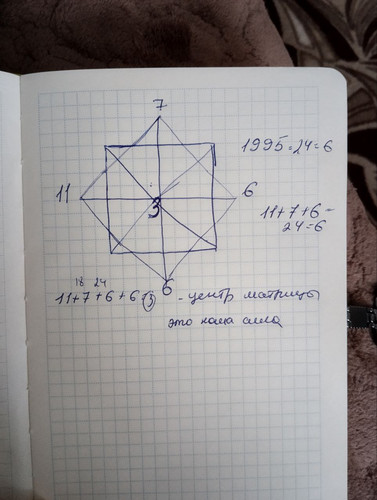 7
1995=24=6
11
3
6
11+7+6=
24=6
6
18 24
11+7+6+6 (3) - центр матрицы
это наша сила